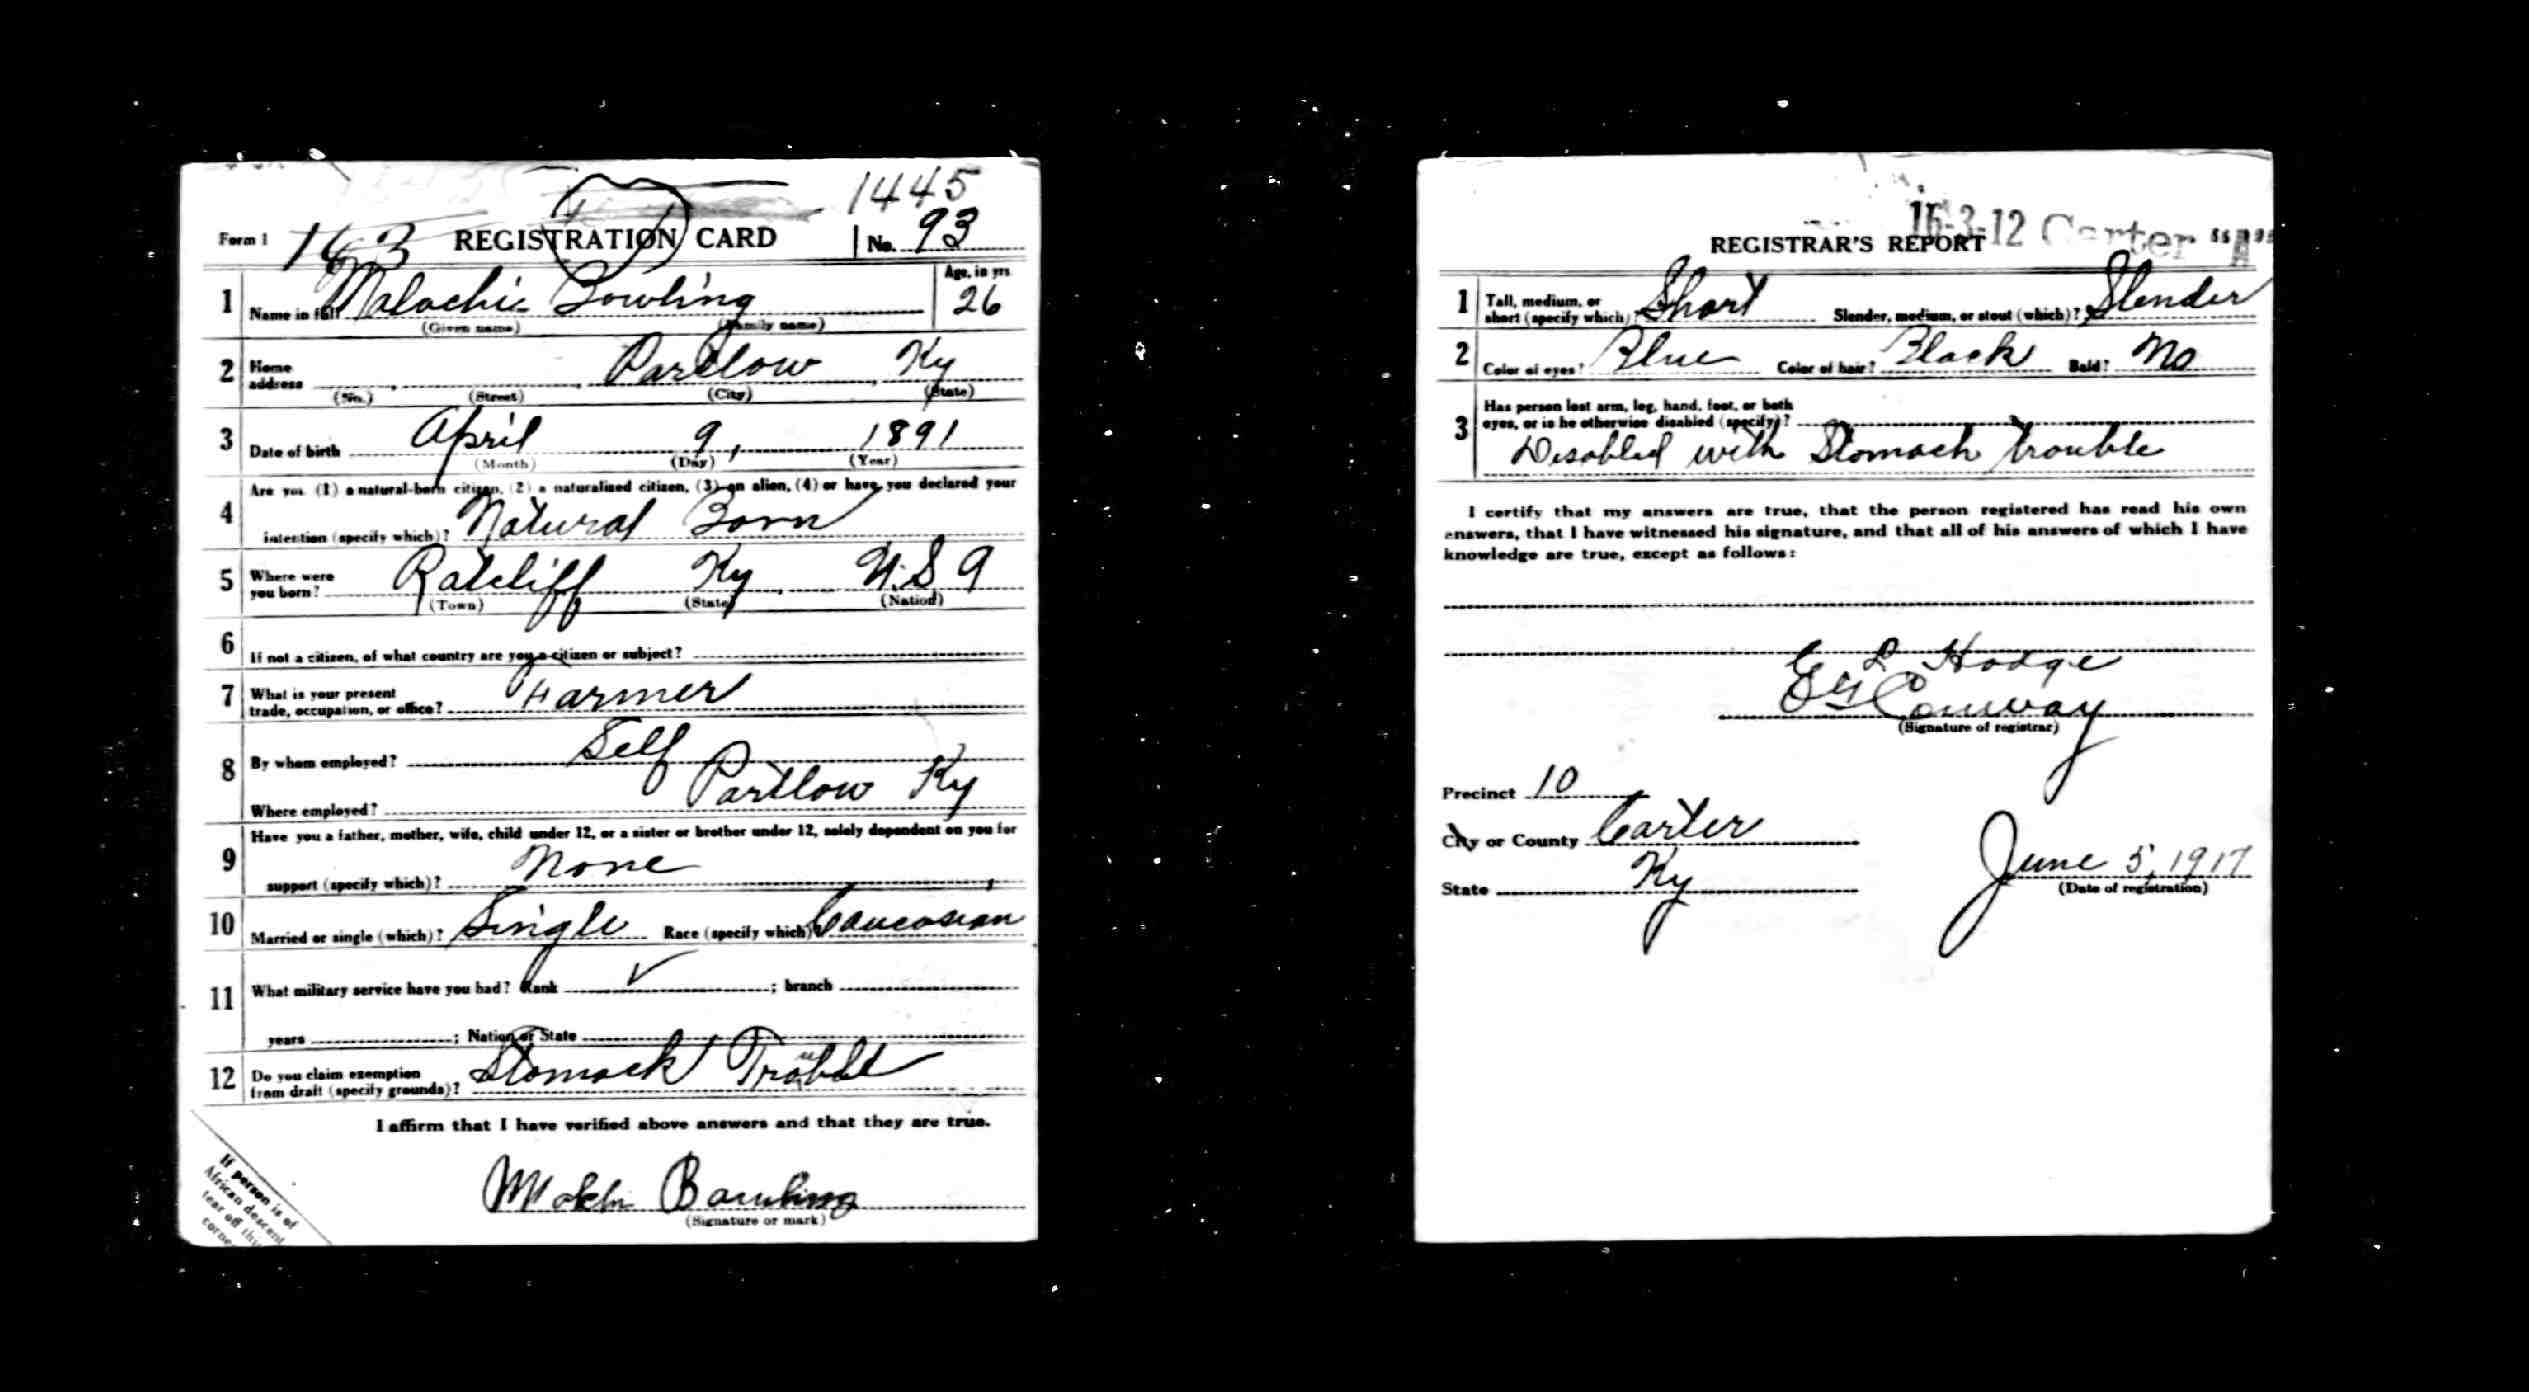 1445
Form 1 163 REGISTRATION CARD No. 93
1 Name in full Malachie Bowling Age, in yrs 26
(Given name) (Family name)
2 Home address Partlow Ky
(No.) (Street) (City) (State)
3 Date of birth April 9, 1891
(Month) (Day) (Year)
4 Are you (1) a natural-born citizen, (2) a naturalized citizen, (3) an alien, (4) or have you declared your
intention (specify which)? Natural Born
5 Where were you born? Ratcliff Ky U.S A
(Town) (State) (Nation)
6 If not a citizen, of what country are you a citizen or subject?
7 What is your present trade, occupation, or office? Farmer
8 By whom employed? Self
Where employed? Partlow Ky
9 Have you a father, mother, wife, child under 12, or a sister or brother under 12, solely dependent on you for
support (specify which)? None
10 Married or single (which)? Single Race (specify which)? Caucasian
11 What military service have you had? Rank ✓ ; branch
years ; Nation or State
12 Do you claim exemption from draft (specify grounds)? Stomach Trouble
I affirm that I have verified above answers and that they are true.
Bowling
(Signature or mark)
If person is of
African descent
tear off this
corner
16-3-12 Carter "A"
REGISTRAR'S REPORT
1 Tall, medium, or short (specify which)? Short Slender, medium, or stout (which)? Slender
2 Color of eyes? Blue Color of hair? Black Bald? No
3 Has person lost arm, leg, hand, foot, or both
eyes, or is he otherwise disabled (specify)?
Disabled with Stomach trouble
I certify that my answers are true, that the person registered has read his own
answers, that I have witnessed his signature, and that all of his answers of which I have
knowledge are true, except as follows:
E L Hodge
Conway
(Signature of registrar)
Precinct 10
City or County Carter
State Ky June 5, 1917
(Date of registration)